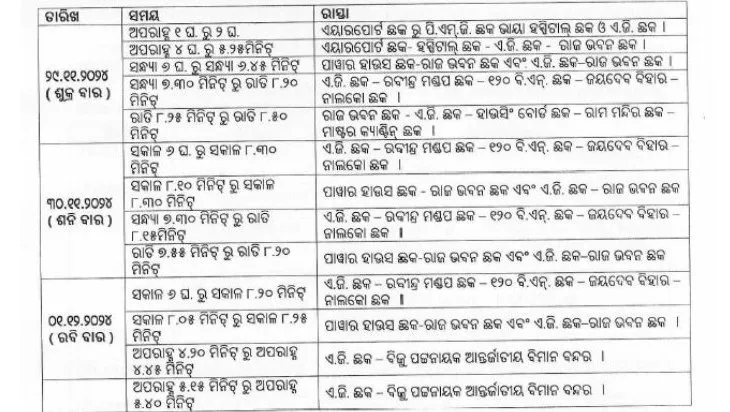 ତାରିଖ ସମୟ ରାସ୍ତା
୨୯.୧୧.୨୦୨୪
( ଶୁକ୍ର ବାର )
ଅପରାହ୍ନ ୧ ଘ. ରୁ ୨ ଘ.
ଏୟାରପୋର୍ଟ ଛକ ରୁ ପି.ଏମ.ଜି. ଛକ ଭାୟା ହସ୍ପିଟାଲ୍ ଛକ ଓ ଏ.ଜି. ଛକ ।
ଅପରାହ୍ନ ୪ ଘ. ରୁ ୫.୨୫ମିନିଟ୍
ଏୟାରପୋର୍ଟ ଛକ- ହସ୍ପିଟାଲ ଛକ - ଏ.ଜି. ଛକ - ରାଜ ଭବନ ଛକ ।
ସନ୍ଧ୍ୟା ୬ ଘ. ରୁ ସନ୍ଧ୍ୟା ୬.୪୫ ମିନିଟ୍
ପାୱାର ହାଉସ ଛକ-ରାଜ ଭବନ ଛକ ଏବଂ ଏ.ଜି. ଛକ–ରାଜ ଭବନ ଛକ ।
ସନ୍ଧ୍ୟା ୭.୩୦ ମିନିଟ୍ ରୁ ରାତି ୮.୨୦
ମିନିଟ୍
ଏ.ଜି. ଛକ – ରବୀନ୍ଦ୍ର ମଣ୍ଡପ ଛକ – ୧୨୦ ବି.ଏନ୍. ଛକ – ଜୟଦେବ ବିହାର –
ନାଲକୋ ଛକ ।
ରାତି ୮.୨୫ ମିନିଟ୍ ରୁ ରାତି ୮.୫୦
ମିନିଟ୍
ରାଜ ଭବନ ଛକ - ଏ.ଜି. ଛକ – ହାଉସିଂ ବୋର୍ଡ ଛକ – ରାମ ମନ୍ଦିର ଛକ –
ମାଷ୍ଟର କ୍ୟାଣ୍ଟିନ୍ ଛକ ।
୩୦.୧୧.୨୦୨୪
( ଶନି ବାର )
ସକାଳ ୬ ଘ. ରୁ ସକାଳ ୮.୩୦
ମିନିଟ୍
ଏ.ଜି. ଛକ – ରବୀନ୍ଦ୍ର ମଣ୍ଡପ ଛକ – ୧୨୦ ବି.ଏନ୍. ଛକ – ଜୟଦେବ ବିହାର –
ନାଲକୋ ଛକ ।
ସକାଳ ୮.୧୦ ମିନିଟ୍ ରୁ ସକାଳ
୮.୩୦ ମିନିଟ୍
ପାୱାର ହାଉସ ଛକ - ରାଜ ଭବନ ଛକ ଏବଂ ଏ.ଜି. ଛକ – ରାଜ ଭବନ ଛକ
ସନ୍ଧ୍ୟା ୭.୩୦ ମିନିଟ୍ ରୁ ରାତି
୮.୧୫ମିନିଟ୍
ଏ.ଜି. ଛକ – ରବୀନ୍ଦ୍ର ମଣ୍ଡପ ଛକ – ୧୨୦ ବି.ଏନ୍. ଛକ – ଜୟଦେବ ବିହାର –
ନାଲକୋ ଛକ ।
ରାତି ୭.୫୫ ମିନିଟ୍ ରୁ ରାତି ୮.୨୦
ମିନିଟ୍
ପାୱାର ହାଉସ ଛକ-ରାଜ ଭବନ ଛକ ଏବଂ ଏ.ଜି. ଛକ–ରାଜ ଭବନ ଛକ
୦୧.୧୨.୨୦୨୪
( ରବି ବାର )
ସକାଳ ୬ ଘ. ରୁ ସକାଳ ୮.୨୦ ମିନିଟ୍
ଏ.ଜି. ଛକ – ରବୀନ୍ଦ୍ର ମଣ୍ଡପ ଛକ – ୧୨୦ ବି.ଏନ୍. ଛକ – ଜୟଦେବ ବିହାର –
ନାଲକୋ ଛକ ।
ସକାଳ ୮.୦୫ ମିନିଟ୍ ରୁ ସକାଳ ୮.୨୫
ମିନିଟ୍
ପାୱାର ହାଉସ ଛକ-ରାଜ ଭବନ ଛକ ଏବଂ ଏ.ଜି. ଛକ–ରାଜ ଭବନ ଛକ ।
ଅପରାହ୍ନ ୪.୨୦ ମିନିଟ୍ ରୁ ଅପରାହ୍ନ
୪.୪୫ ମିନିଟ୍
ଏ.ଜି. ଛକ – ବିଜୁ ପଟ୍ଟନାୟକ ଆନ୍ତର୍ଜାତୀୟ ବିମାନ ବନ୍ଦର ।
ଅପରାହ୍ନ ୫.୧୫ ମିନିଟ୍ ରୁ ଅପରାହ୍ନ
୫.୪୦ ମିନିଟ୍
ଏ.ଜି. ଛକ – ବିଜୁ ପଟ୍ଟନାୟକ ଆନ୍ତର୍ଜାତୀୟ ବିମାନ ବନ୍ଦର ।